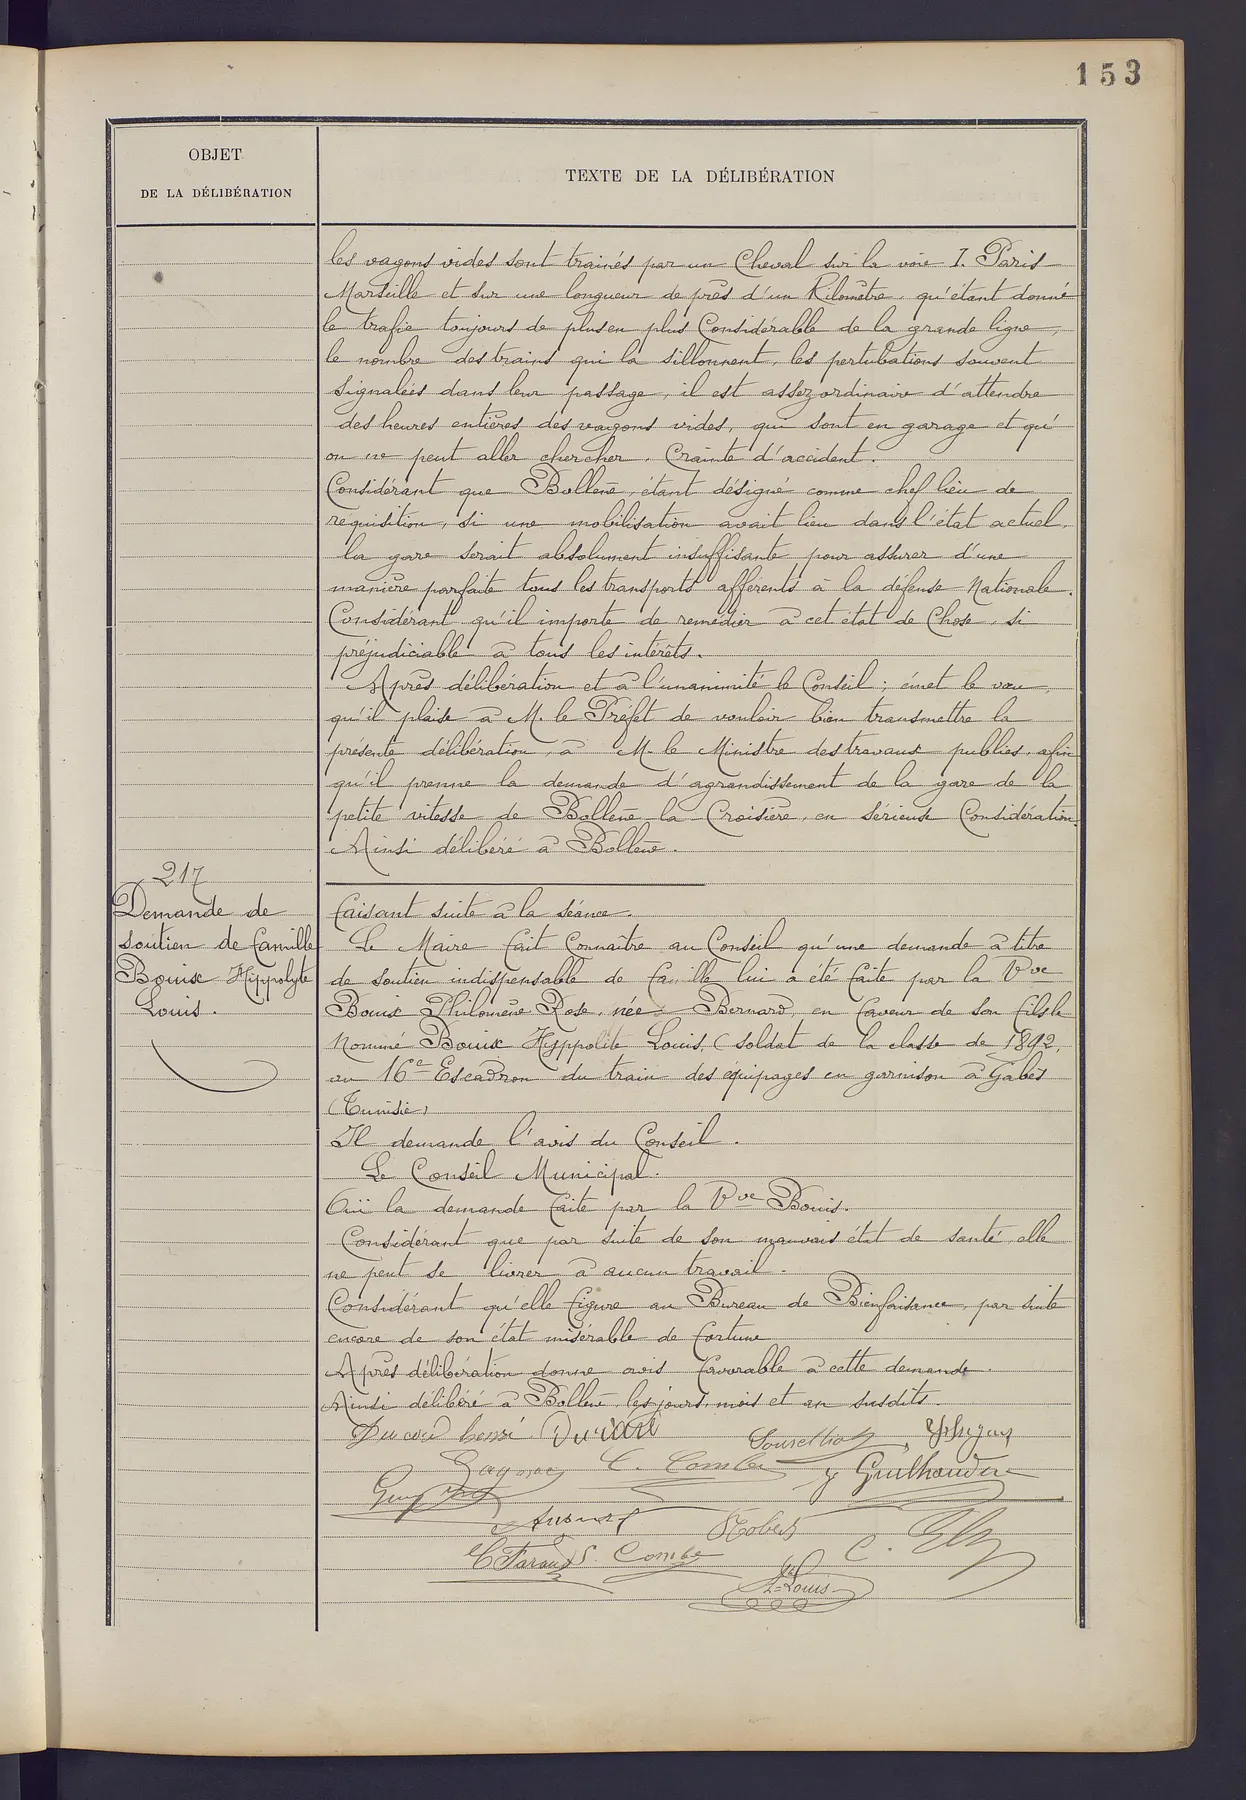 153
OBJET
DE LA DÉLIBÉRATION
TEXTE DE LA DÉLIBÉRATION
les vagons vides sont trainés par un Cheval sur la voie I. Paris
Marseille et sur une longueur de près d'un Kilomètre, qu'étant donné
le trafic toujours de plus en plus Considérable de la grande ligne,
le nombre des trains qui la sillonnent, les pertubations souvent
signalées dans leur passage, il est assez ordinaire d'attendre
des heures entières des vagons vides, qui sont en garage et qu'
on ne peut aller chercher, Crainte d'accident.
Considérant que Bollène, étant désigné comme chef lieu de
réquisition, si une mobilisation avait lieu dans l'état actuel,
la gare serait absolument insuffisante pour assurer d'une
manière parfaite tous les transports afférents à la défense Nationale.
Considérant qu'il importe de remédier à cet état de Chose, si
préjudiciable à tous les intérêts.
Après délibération et à l'unanimité le Conseil; émet le vœu,
qu'il plaise à M. le Préfet de vouloir bien transmettre la
présente délibération, à M. le Ministre des travaux publics, afin
qu'il prenne la demande d'agrandissement de la gare de la
petite vitesse de Bollène la Croisière, en sérieuse Considération.
Ainsi délibéré à Bollène.
217
Demande de
soutien de famille
Bouix Hippolyte
Louis.
Faisant suite à la séance.
Le Maire fait Connaître au Conseil qu'une demande à titre
de soutien indispensable de famille lui a été faite par la Vve
Bouix Philomène Rose, née Bernard, en faveur de son fils le
Nommé Bouix Hyppolite Louis, (soldat de la classe de 1892,
au 16e Escadron du train des équipages en garnison à Gabès
(Tunisie)
Il demande l'avis du Conseil.
Le Conseil Municipal.
Ouï la demande faite par la Vve Bouis.
Considérant que par suite de son mauvais état de santé, elle
ne peut se livrer à aucun travail.
Considérant qu'elle figure au Bureau de Bienfaisance, par suite
encore de son état misérable de fortune
Après délibération donne avis favorable à cette demande.
Ainsi délibéré à Bollène, les jours, mois et an susdits.
C. Combe
Guilhaudin
C. Faraud S. Combe
Louis